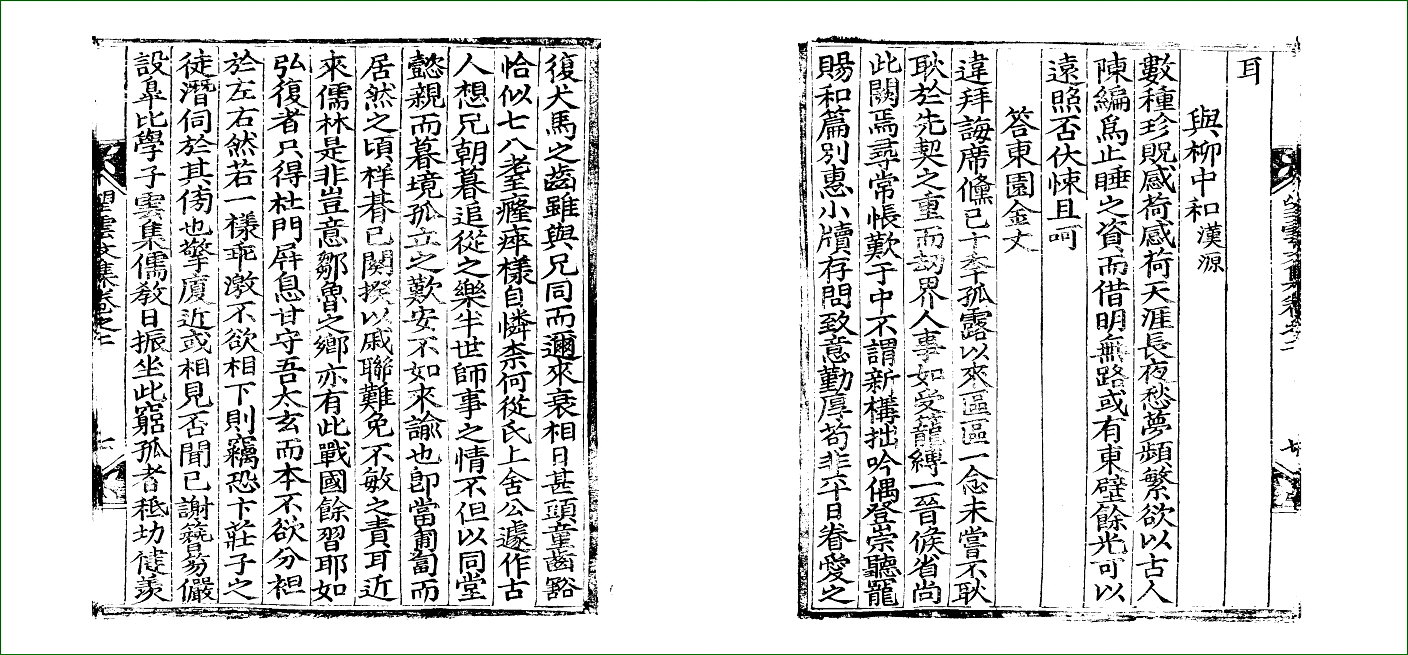 耳
與柳中和漢源
數種珍貺感荷感荷天涯長夜愁夢頻繁欲以古人
陳編爲止睡之資而借明無路或有東壁餘光可以
遠照否伏悚且呵
答東園金丈
違拜誨席儵已十季孤露以來區區一念未嘗不耿
耿於先契之重而刼界人事如受籠縛一晉候省尚
此闕焉尋常悵歎于中不謂新構拙吟偶登崇聽寵
賜和篇別惠小牘存問致意勤厚苟非平日眷愛之
復犬馬之齒雖與兄同而邇來衰相日甚頭童齒豁
恰似七八耋癃瘁樣自憐柰何從氏上舍公遽作古
人想兄朝暮追從之樂半世師事之情不但以同堂
懿親而暮境孤立之歎安不如來諭也卽當匍匐而
居然之頃祥朞已闋揆以戚聯難免不敏之責耳近
來儒林是非豈意鄒魯之鄉亦有此戰國餘習耶如
弘復者只得杜門屛息甘守吾太玄而本不欲分袒
於左右然若一樣乖激不欲相下則竊恐卞莊子之
徒潛伺於其傍也擎廈近或相見否聞已謝簪笏儼
設皐比學子雲集儒敎日振坐此窮孤者秪切健羨
望雲文集卷之二